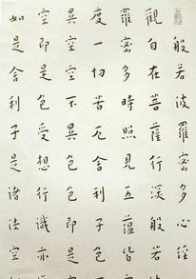 般若波羅蜜多心經
觀自在菩薩行深般若
羅蜜多時照見五蘊皆
度一切苦厄舍利子色
異空空不異色色即是
空即是色受想行識亦
如是舍利子是諸法空